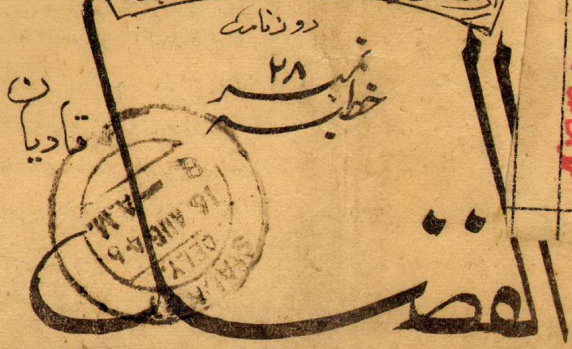 روزنامہ
خطبہ نمبر ۲۸
قادیان
الفضل
8 A.M.
16 AUG 45
DELY